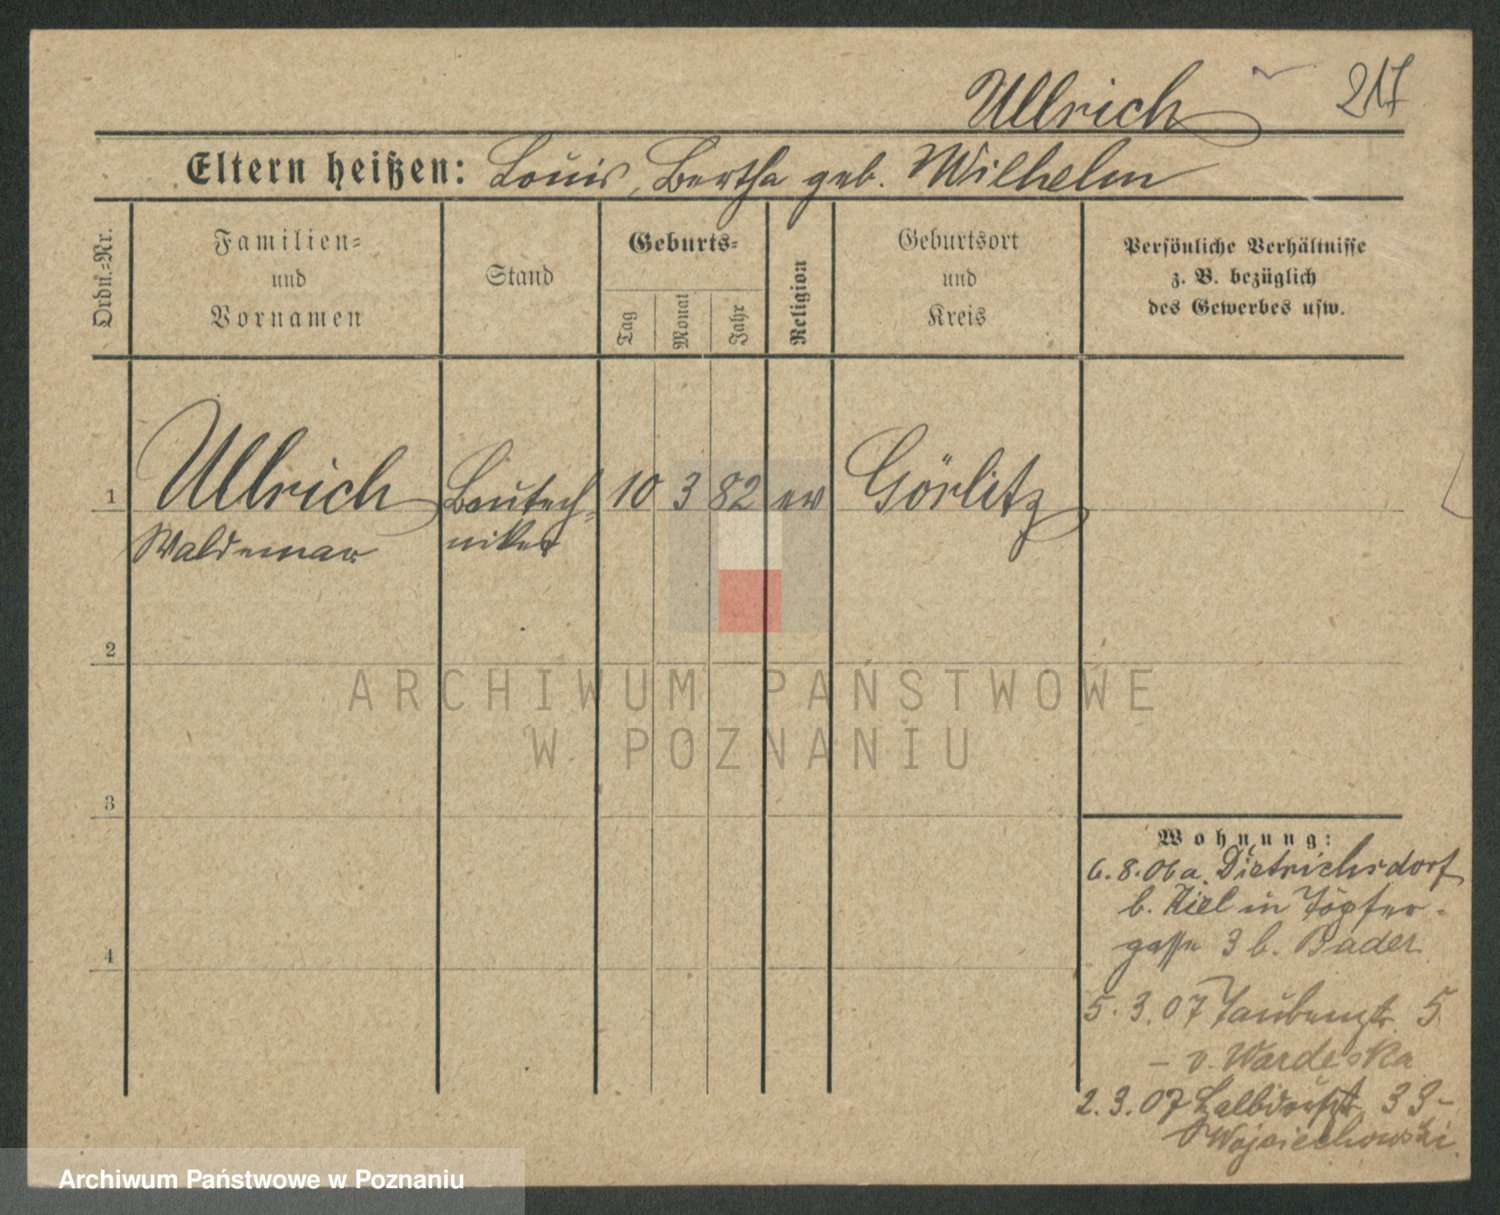 Ullrich 217
Eltern heißen: Louis, Bertha geb. Wilhelm
Ordn.=Nr.
Familien=
und
Vornamen
Stand
Geburts=
Tag
Monat
Jahr
Religion
Geburtsort
und
Kreis
Persönliche Verhältnisse
z. B. bezüglich
des Gewerbes usw.
1 Ullrich Bautech= 10 3 82 ev Görlitz
Waldemar niker
2
ARCHIWUM PAŃSTWOWE
W POZNANIU
3
Wohnung:
6.8.06 a. Dietrichsdorf
b. Kiel in Töpfer-
gasse 3 b. Bader
4
5.3.07 Taubenstr 5
- v. Wardeska
2.9.07 33-
Wojciechowski
Archiwum Państwowe w Poznaniu